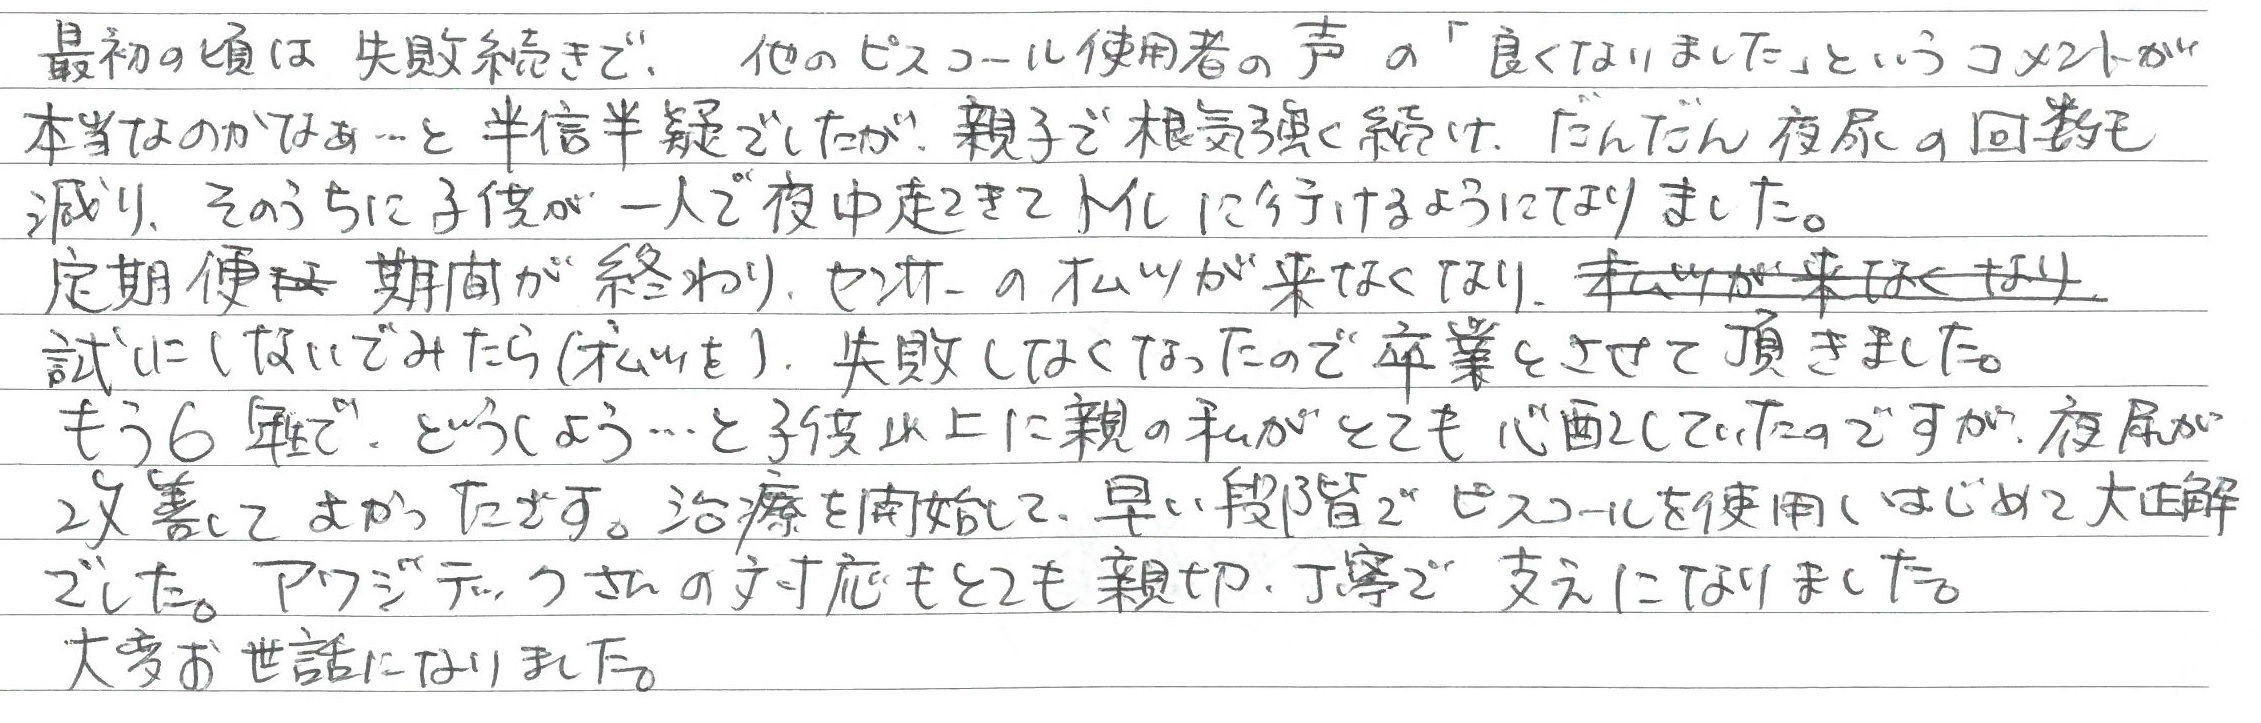 最初の頃は失敗続きで、他のピスコール使用者の声の「良くなりました」というコメントが
本当なのかなぁ…と半信半疑でしたが、親子で根気強く続け、だんだん夜尿の回数も
減り、そのうちに子供が一人で夜中起きてトイレに行けるようになりました。
定期便 期間が終わり、センサーのオムツが来なくなり、オムツが来なくなり、
試しにしないでみたら(オムツを)、失敗しなくなったので卒業とさせて頂きました。
もう6年生で、どうしよう…と子供以上に親の私がとても心配していたのですが、夜尿が
改善してよかったです。治療を開始して、早い段階でピスコールを使用しはじめて大正解
でした。アワジテックさんの対応もとても親切、丁寧で支えになりました。
大変お世話になりました。